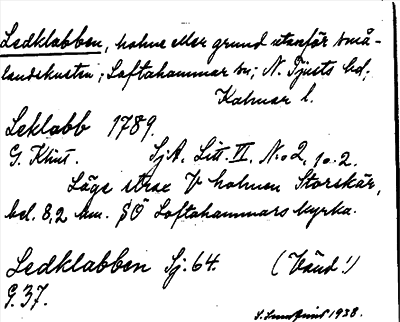 Ledklabben, holme eller grund utanför små-
landskusten; Loftahammar sn; N. Tjusts hd;
Kalmar l.
Leklabb 1789.
G. Klint. SjA. Litt. VI, No 2, 10.2.
Läge strax V holmen Storskär,
bel. 8,2 km. SÖ Loftahammars kyrka.
Ledklabben Sj. 64. (Vänd!)
G. 37.
1938.